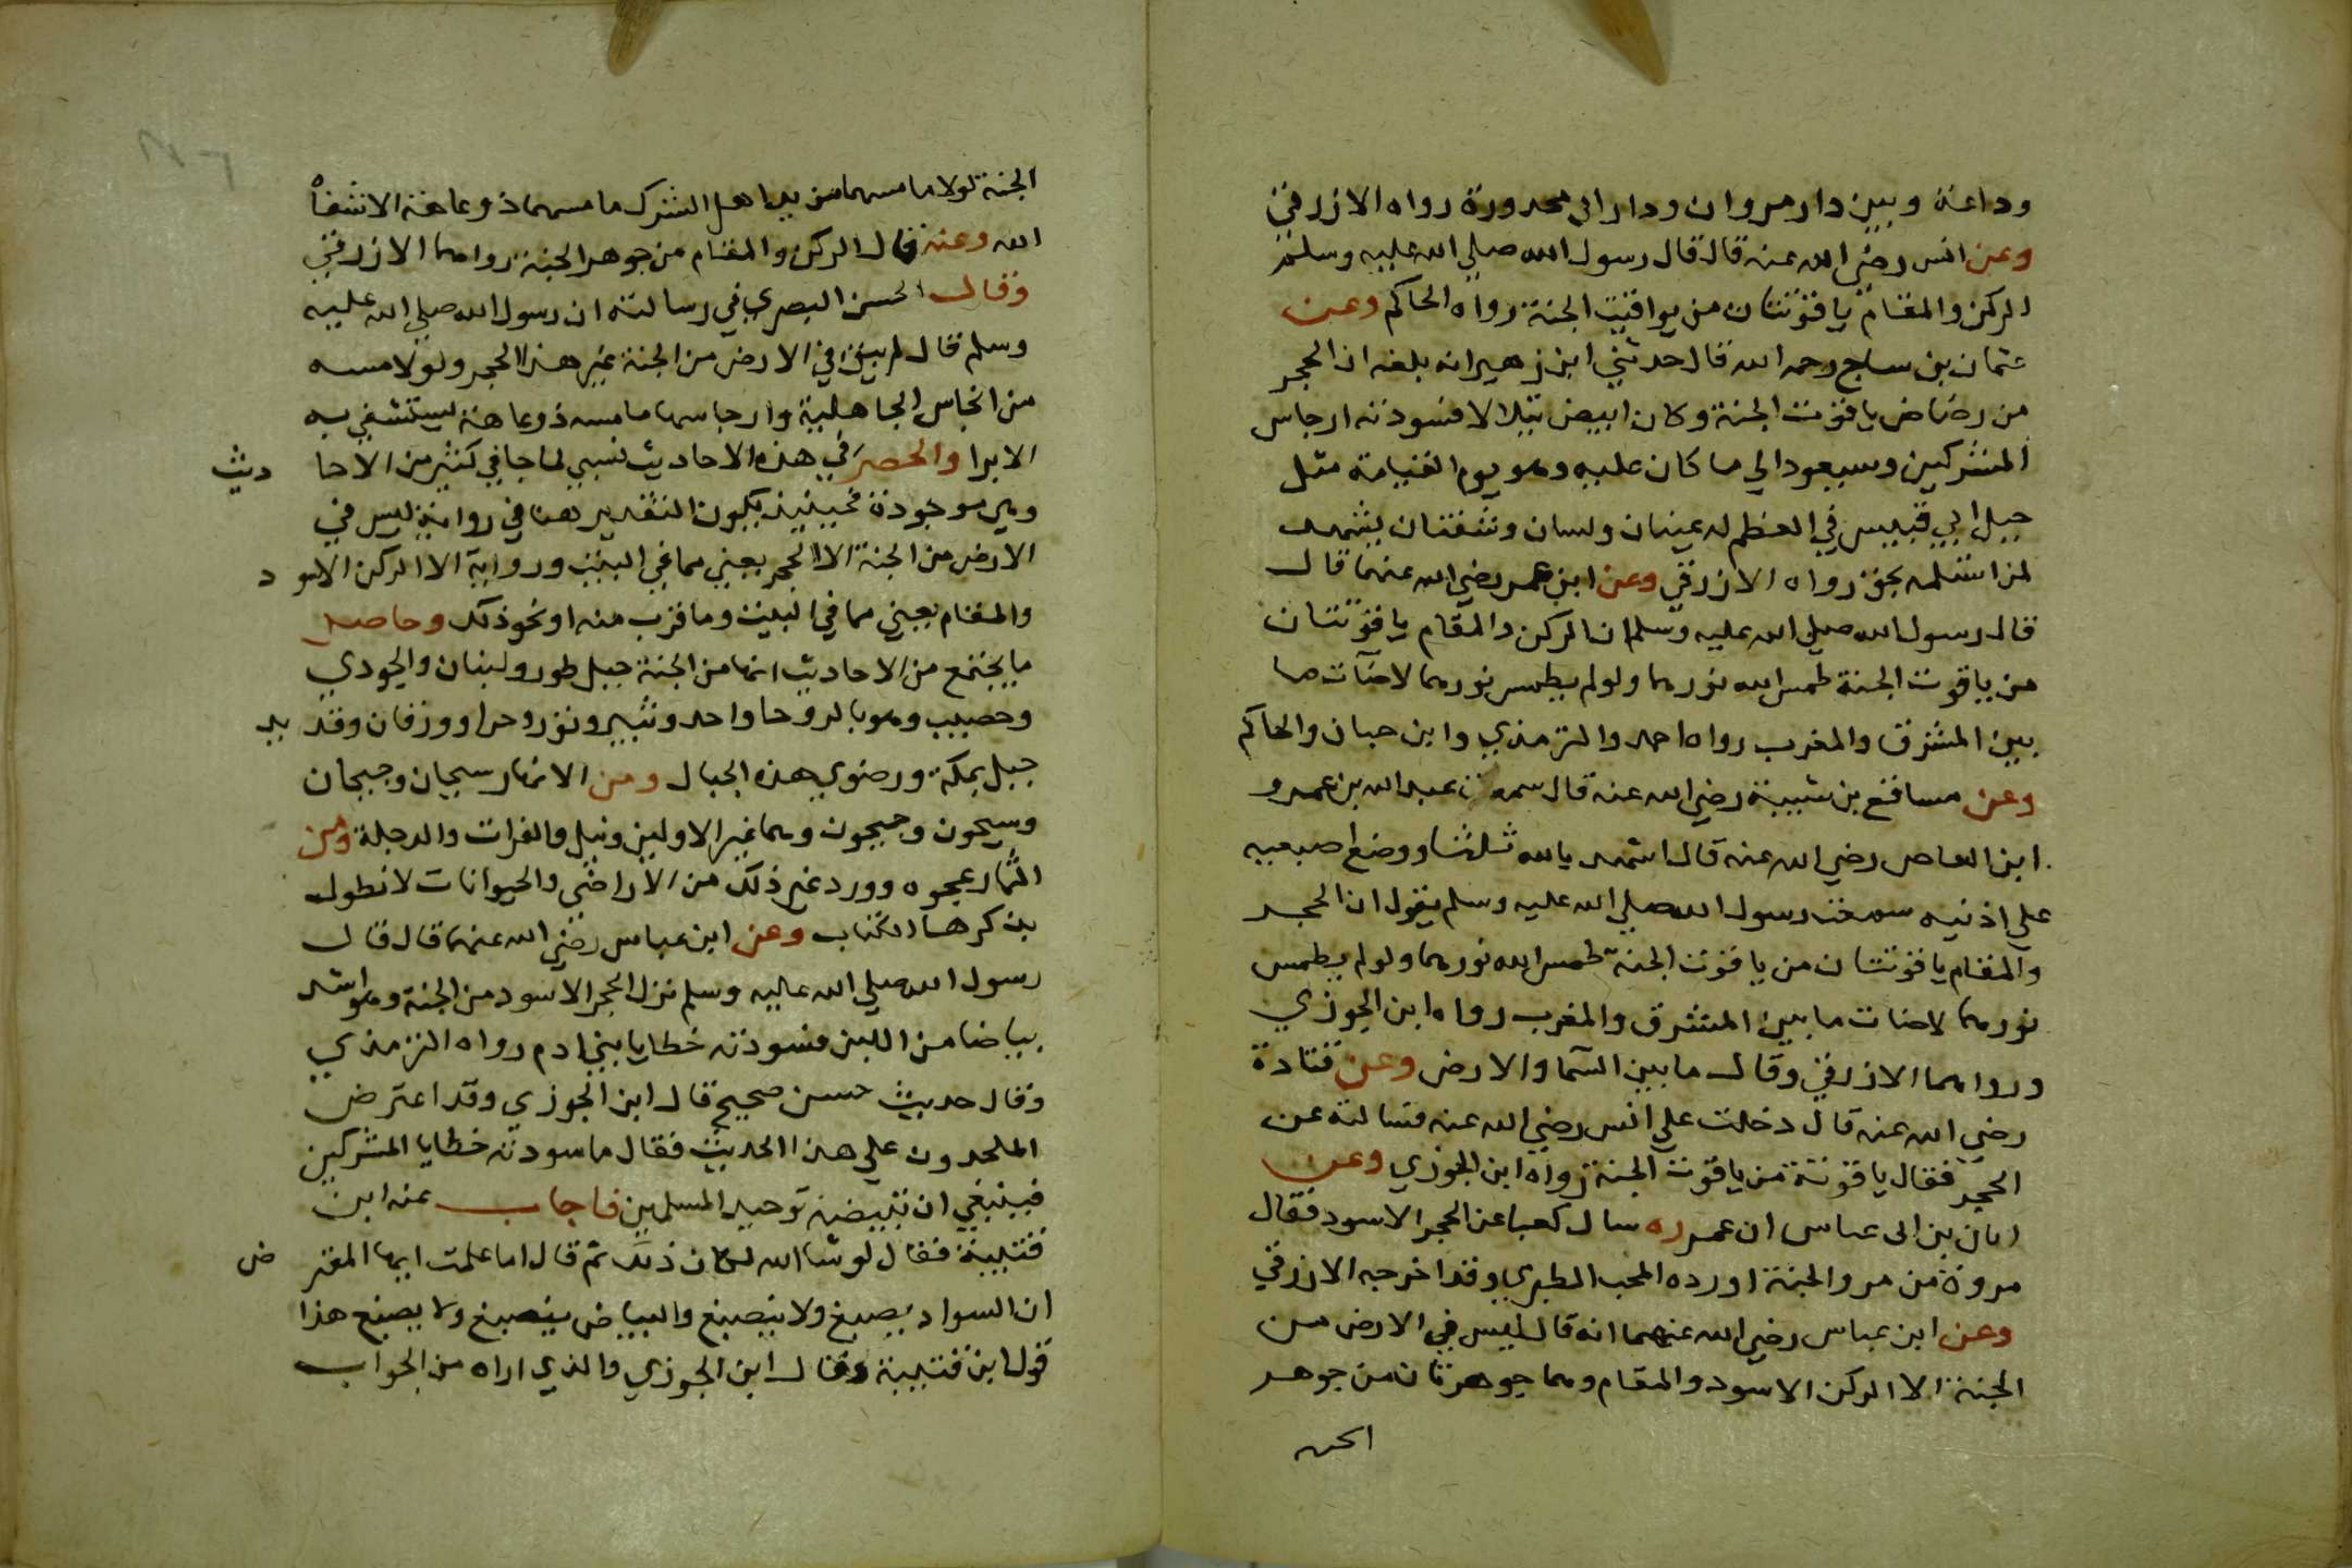 وداعة وبين دار مروان ودار ابي محدورة رواه الازرقي
وعن انس رضي الله عنه قال قال رسول الله صلي الله عليه وسلم
الركن والمقام ياقوتتان من يواقيت الجنة رواه الحاكم وعن
عثمان بن ساج رحمه الله قال حدثني ابن زهير انه بلغه ان الحجر
من رضاض ياقوت الجنة وكان ابيض يتلالا فسودته ارجاس
المشركين وسيعود الي ما كان عليه وهو يوم القيامة مثل
جبل ابي قبيس في العظم له عينان ولسان وشفتان يشهد
لمن استلمه بحق رواه الازرقي وعن ابن عمر رضي الله عنهما قال
قال رسول الله صلي الله عليه وسلم ان الركن والمقام ياقوتتان
من ياقوت الجنة طمس الله نورهما ولولم يطمس نورهما لاضآت ما
بين المشرق والمغرب رواه احمد والترمذي وابن حبان والحاكم
وعن مسافع بن شيبة رضي الله عنه قال سمعت عبد الله بن عمرو
ابن العاص رضي الله عنه قال اشهد بالله ثلثا ووضع اصبعيه
علي اذنيه سمعت رسول الله صلي الله عليه وسلم يقول ان الحجر
والمقام ياقوتتان من ياقوت الجنة طمس الله نورهما ولولم يطمس
نورهما لاضات ما بين المشرق والمغرب رواه ابن الجوزي
ورواهما الازرقي وقال ما بين السما والارض وعن قتادة
رضي الله عنه قال دخلت علي انس رضي الله عنه فسالته عن
الحجر فقال ياقوتة من ياقوت الجنة رواه ابن الجوزي وعن
ابان بن ابى عباس ان عمر ره سال كعبا عن الحجر الاسود فقال
مروة من مرو الجنة اورده المحب الطبري وقد اخرجه الازرقي
وعن ابن عباس رضي الله عنهما انه قال ليس في الارض من
الجنة الا الركن الاسود والمقام وهما جوهرتان من جوهر
الجنة
الجنة لولا ما مسهما من يد اهل الشرك ما مسهما ذو عاهة الا شفاه
الله وعنه قال الركن والمقام من جوهر الجنة رواهما الازرقي
وقال الحسن البصري في رسالته ان رسول الله صلي الله عليه
وسلم قال لم يبق في الارض من الجنة غير هذا الحجر ولولا مسه
من انجاس الجاهلية وارجاسها ما مسه ذو عاهة يستشفي به
الا برا والحصر في هذه الاحاديث نسبي لما جا في كثير من الاحا ديث
وهي موجودة فحينيذ يكون التقدير هنا في رواية ليس في
الارض من الجنة الا الحجر يعني مما في البيت ورواية الا الركن الاسو د
والمقام يعني مما في البيت وما قرب منه او نحو ذلك وحاصل
ما يجتمع من الاحاديث انها من الجنة جبل طور ولبنان والجودي
وحصيب وهو بالروحا واحد وثبير وثور وحرا وورقان وقد يد
جبل بمكة ورضوي هذه الجبال ومن الانهار سيحان وجيحان
وسيحون وجيحون وهما غير الاولين ونيل والفرات والدجلة ومن
الثمار عجوه وورد غير ذلك من الاراضي والحيوانات لا نطول
بذكرها الكتاب وعن ابن عباس رضي الله عنهما قال قال
رسول الله صلي الله عليه وسلم نزل الحجر الاسود من الجنة وهو اشد
بياضا من اللبن فسودته خطايا بني ادم رواه الترمذي
وقال حديث حسن صحيح قال ابن الجوزي وقد اعترض
الملحدون علي هذا الحديث فقال ما سودته خطايا المشركين
فينبغي ان تبيضه توحيد المسلمين فاجاب عنه ابن
قتيبة فقال لو شا الله لكان ذلك ثم قال اما علمت ايها المعتر ض
ان السواد يصبغ ولا ينصبغ والبياض ينصبغ ولا يصبغ هذا
قول ابن قتيبة وقال ابن الجوزي والذي اراه من الجواب